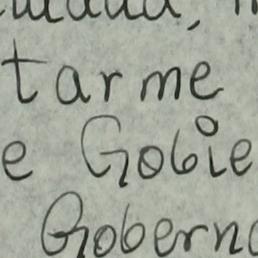 tarme
e Gobie
Gobern